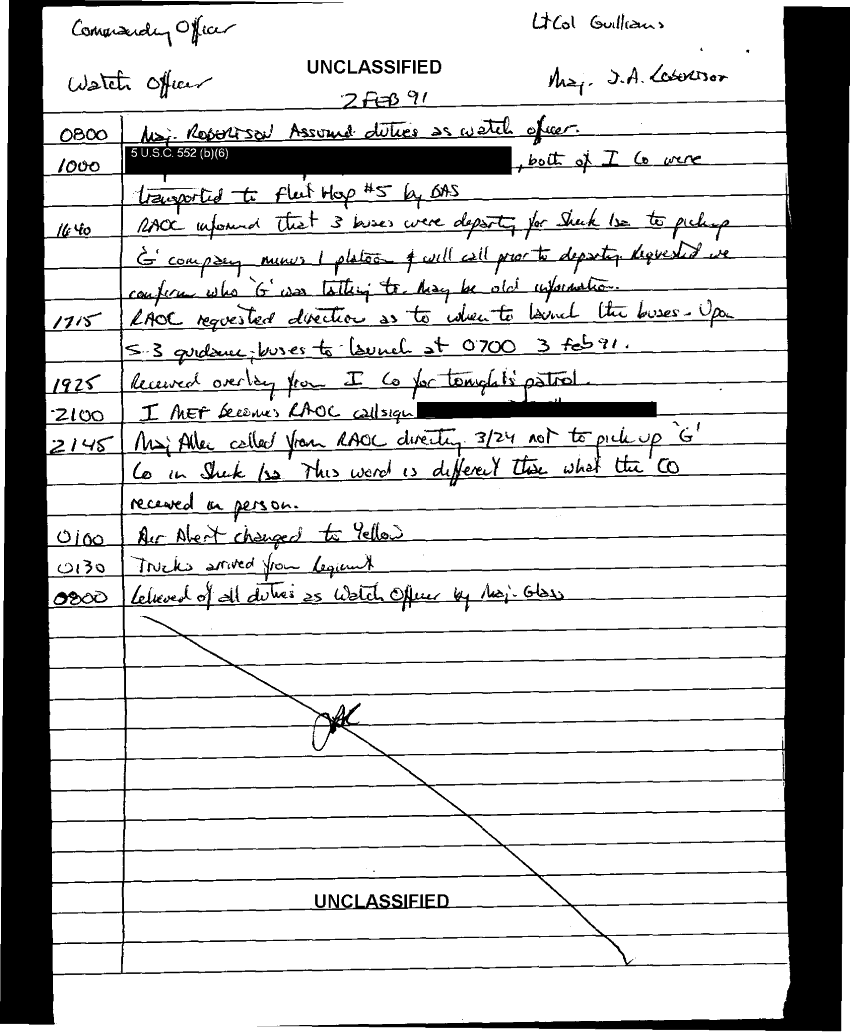 Commanding Officer LtCol Guilliams
UNCLASSIFIED
Watch Officer Maj. J.A. Robertson
2 FEB 91
0800 Maj. Robertson Assumed duties as watch officer.
5 U.S.C. 552 (b)(6)
1000 , both of I Co were
transported to Fleet Hosp #5 by BAS
1640 RAOC informed that 3 buses were departing for Sheik Isa to pickup
'G' company minus 1 platoon & will call prior to departing. Requested we
confirm who 'G' was talking to. May be old information.
1715 RAOC requested direction as to when to launch the buses - Upon
S-3 guidance, buses to launch at 0700 3 Feb 91.
1925 Received overlay from I Co for tonight's patrol.
2100 I MEF becomes RAOC callsign
2145 Maj Allen called from RAOC directing 3/24 not to pick up 'G'
Co in Sheik Isa This word is different than what the CO
received in person.
0100 Air Alert changed to Yellow
0130 Trucks arrived from Regiment
0800 Relieved of all duties as Watch Officer by Maj. Glass
UNCLASSIFIED